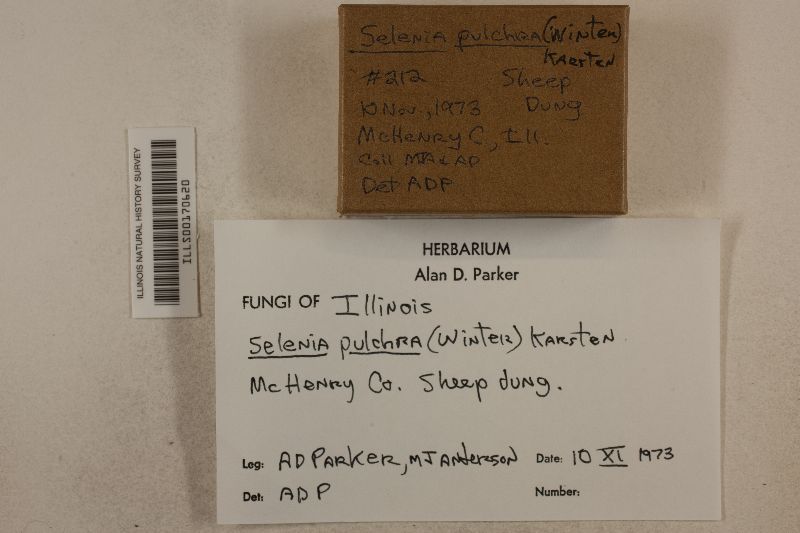 Selenia pulchra (Winter)
Karsten
#212 Sheep
10 Nov., 1973 Dung
McHenry C, Ill.
Coll MJA & AD
Det ADP
ILLINOIS NATURAL HISTORY SURVEY
ILLS00170620
HERBARIUM
Alan D. Parker
FUNGI OF Illinois
Selenia pulchra (Winter) Karsten
McHenry Co. Sheep dung.
Leg: AD Parker, MJ Anderson Date: 10 XI 1973
Det: ADP Number: